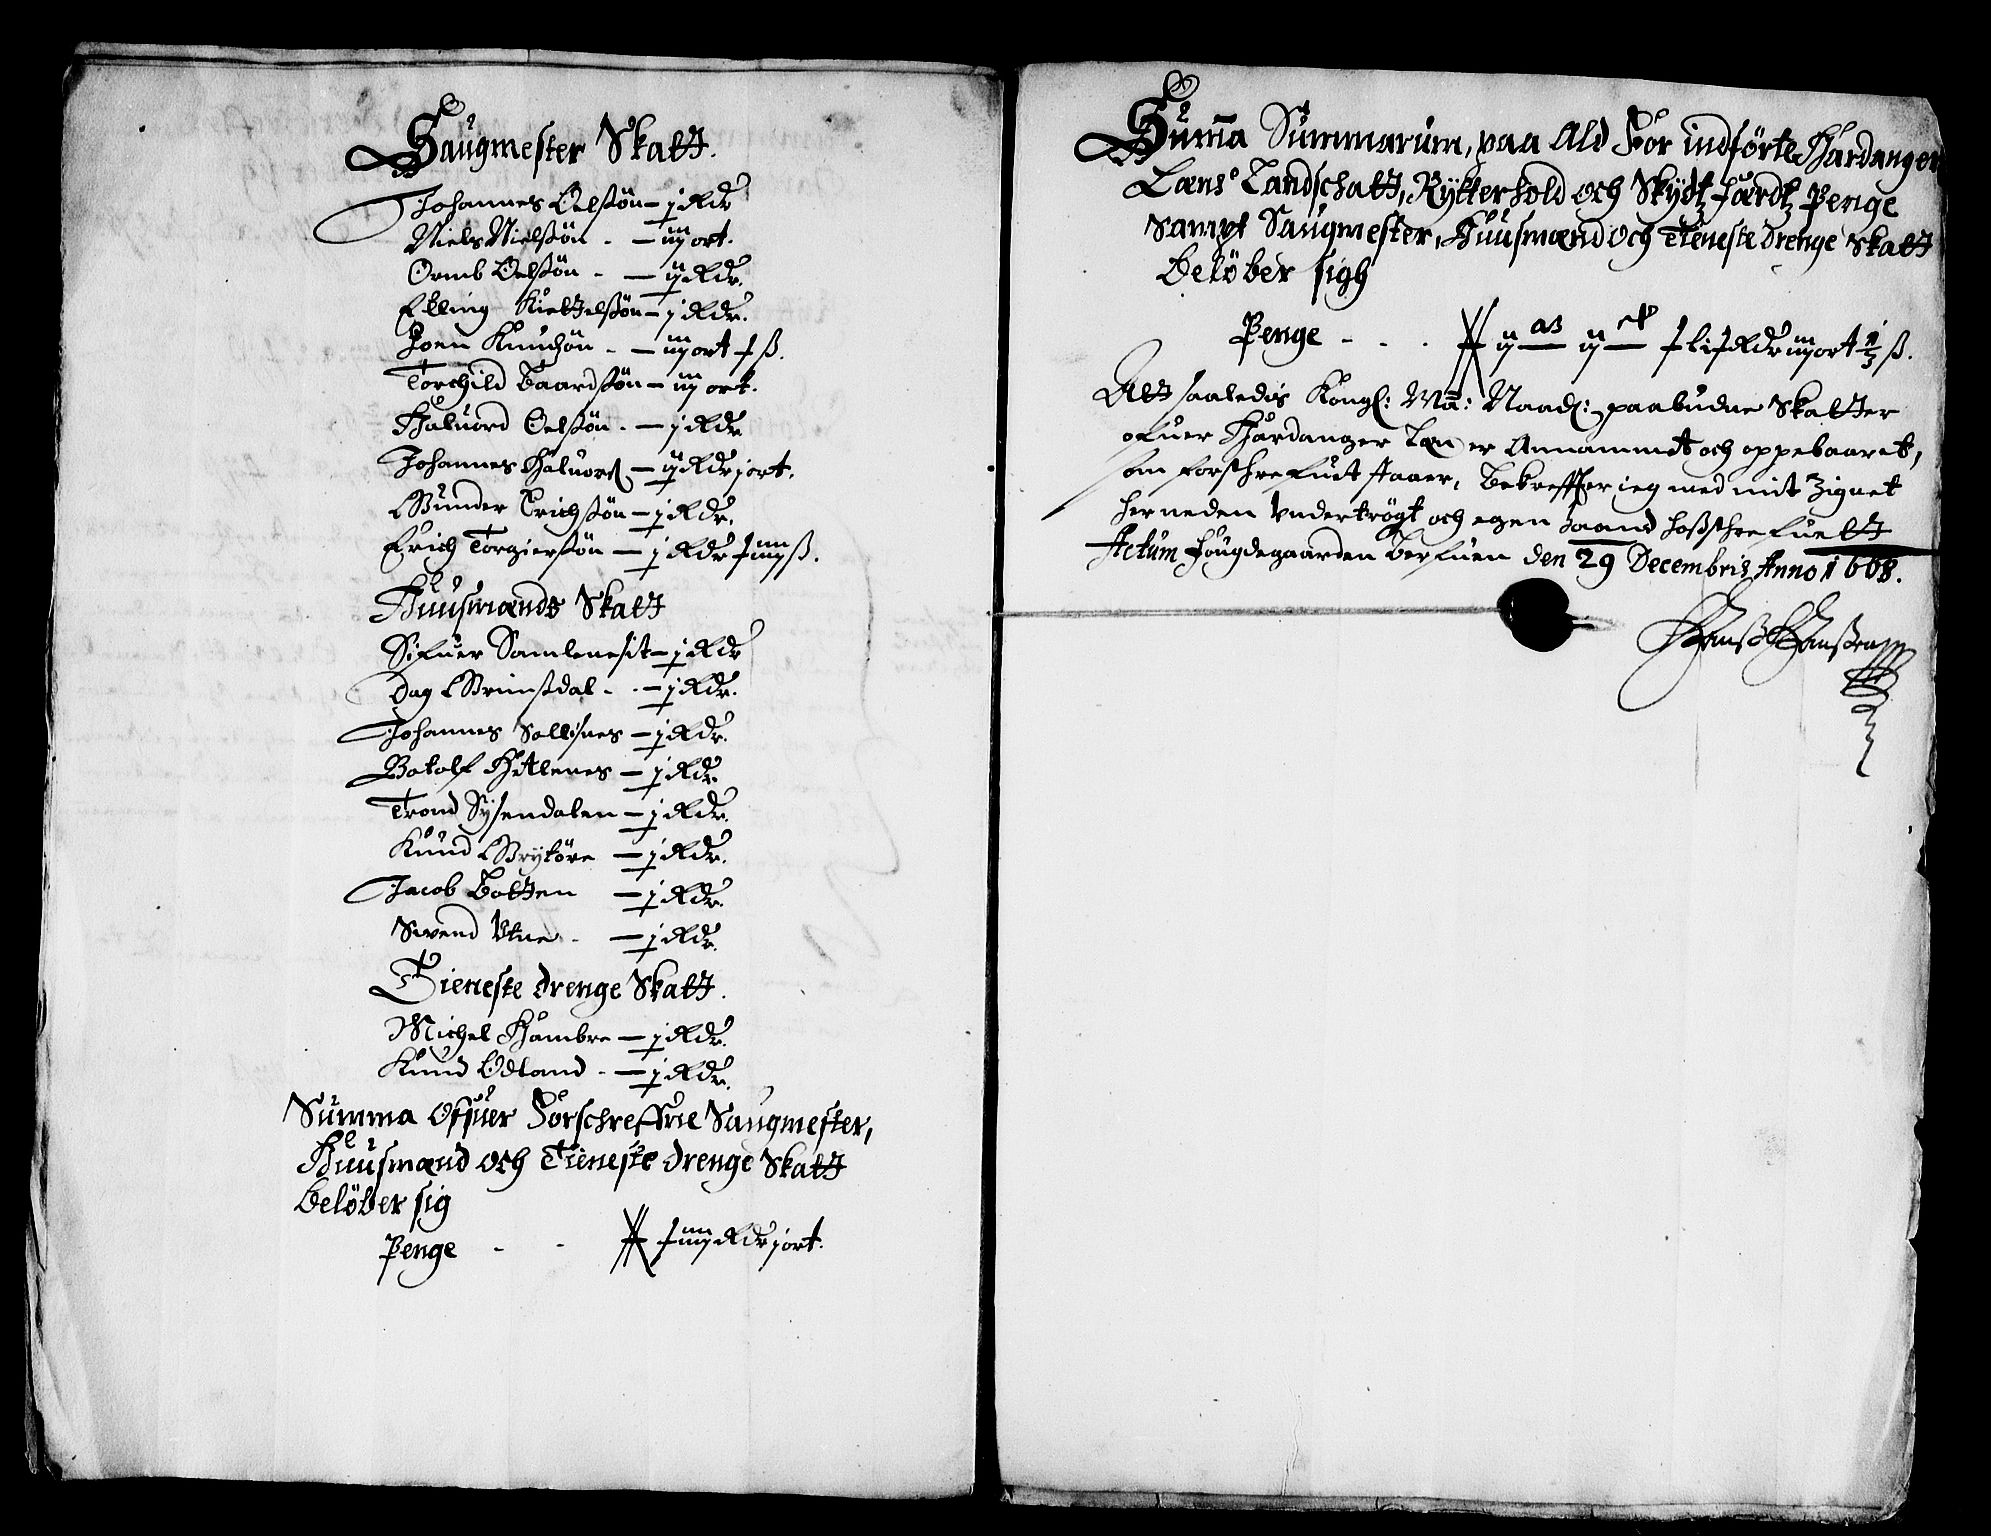 Saugmester Skatt.
Johannes Oelsßön – j Rdr
Niels Nielßön - – iij ort.
Ormb Oelßön - – ij Rdr.
Elling Kiettelßön – j Rdr.
Joen Knudzön - – iij ort x ß.
Torchild Baardßön – iij ort.
Haluord Oelßön - – j Rdr
Johannes Haluorß – ij Rdr j ort.
Gunder Erichßön – j Rdr.
Erich Torgierßön – j Rdr xiiij ß.
Huusmænds Skatt
Sifuer Samlenesit – j Rdr
Dag Grimßdal - - – j Rdr.
Johannes – j Rdr.
Botolf – j Rdr
Trond Sysendalen – j Rdr.
Knud – j Rdr.
Jacob Botten – j Rdr.
Swend Utne - – j Rdr.
Tieneste drenge Skatt.
Michel Hambre – j Rdr.
Knud Odland - – j Rdr.
Summa Offuer Forschreffne Saugmester,
Huusmænd och Tieneste drenge Skatt
Belöber sig
Penge - - xiiij Rdr j ort.
Summa Summarum, paa Ald For indförte Hardanger
Læns Landschatt, Rytterhold och Skydtz færdtz Penge
Sampt Saugmester, Huusmænd och Tieneste drenge Skatt
Belöber sigh
Penge - - - ij M ij C xlix Rdr iij ort 1/3 ß.
Att saaledis Kongl: Ma: Naad: paabudne Skatter
ofuer Hardanger Len er Annammdt och oppebaaret,
som forschrefuit staaer, Bekreffter ieg med mit Zignet
her neden Undertrögt och egen haand hoßschrefuett
Actum Fougdegaarden Berfuen den 29 Decembris Anno 1668.
Hanß Hanßen